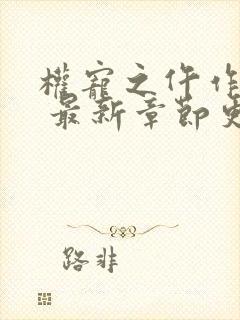 權寵之仵作
最新章節
路非